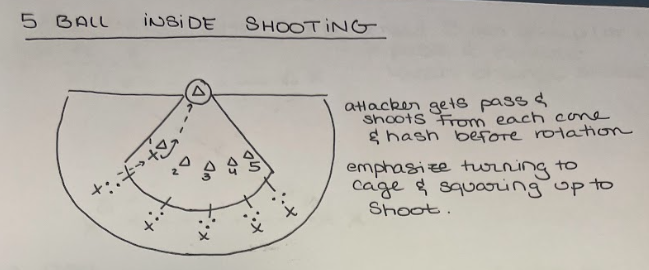 5 BALL INSIDE SHOOTING
attacker gets pass &
shoots from each cone
& hash before rotation
1
x
2
3
4
5
emphasize turning to
cage & squaring up to
shoot.
x
x
x
x
x